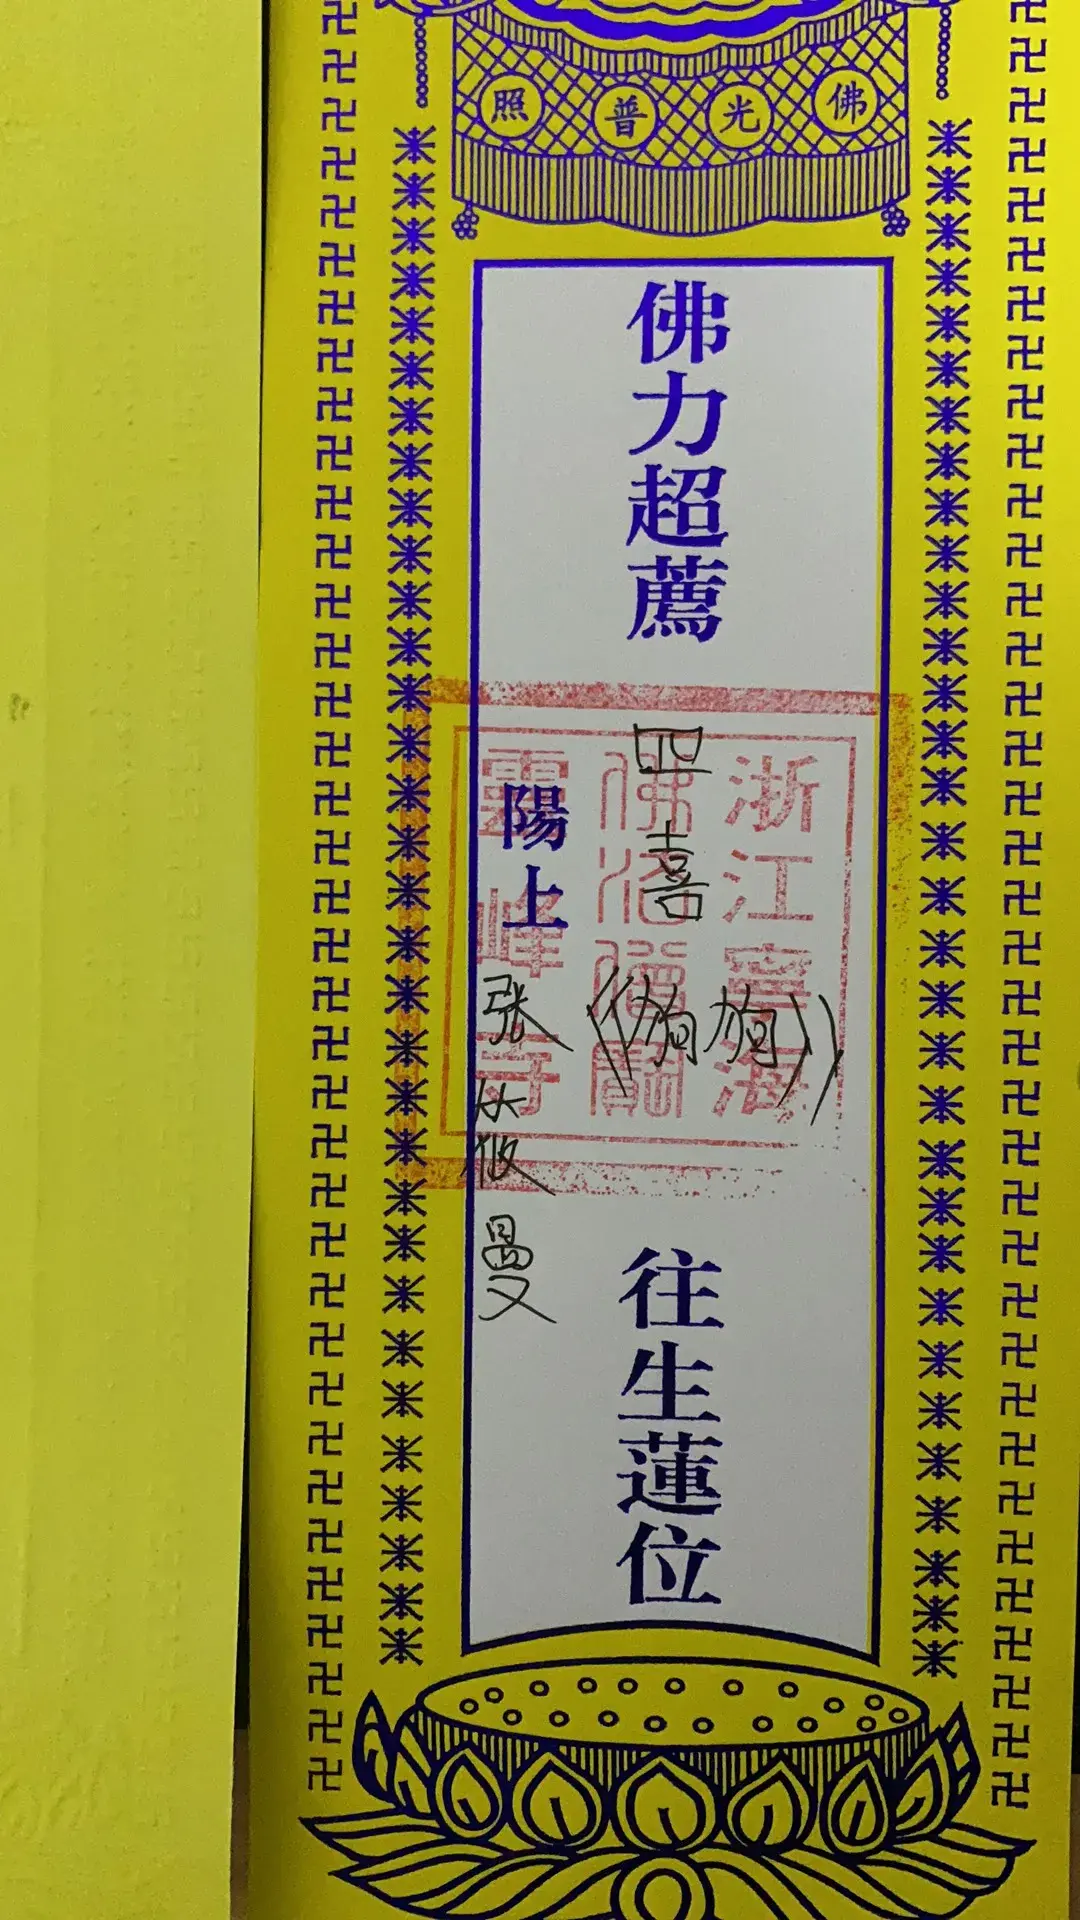 佛光普照
佛力超薦
四喜
((狗狗))
往生蓮位
陽上
张筱曼
浙江寧海
佛法僧寶
峰寺